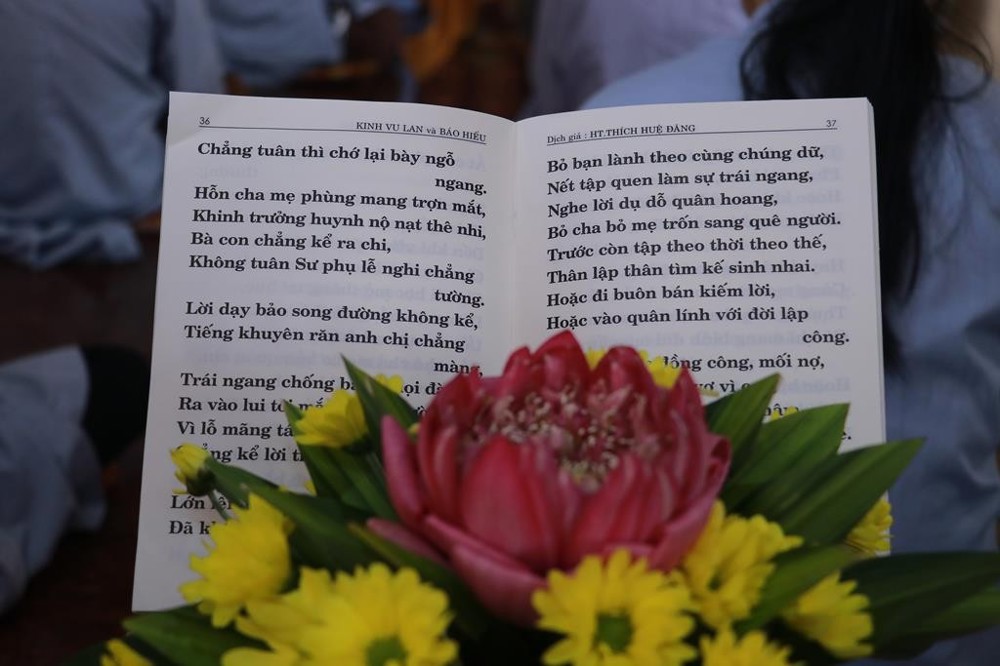 36
KINH VU LAN và BÁO HIẾU
Chẳng tuân thì chớ lại bày ngỗ
ngang.
Hỗn cha mẹ phùng mang trợn mắt,
Khinh trưởng huynh nộ nạt thê nhi,
Bà con chẳng kể ra chi,
Không tuân Sư phụ lễ nghi chẳng
tường.
Lời dạy bảo song đường không kể,
Tiếng khuyên răn anh chị chẳng
màng,
Trái ngang chống
Ra vào lui tới
Vì lỗ mãng
kể lời
Lớn
Đã
Dịch giả : HT.THÍCH HUỆ ĐĂNG
37
Bỏ bạn lành theo cùng chúng dữ,
Nết tập quen làm sự trái ngang,
Nghe lời dụ dỗ quân hoang,
Bỏ cha bỏ mẹ trốn sang quê người.
Trước còn tập theo thời theo thế,
Thân lập thân tìm kế sinh nhai.
Hoặc đi buôn bán kiếm lời,
Hoặc vào quân lính với đời lập
công.
đồng công, mối nợ,
vợ vì